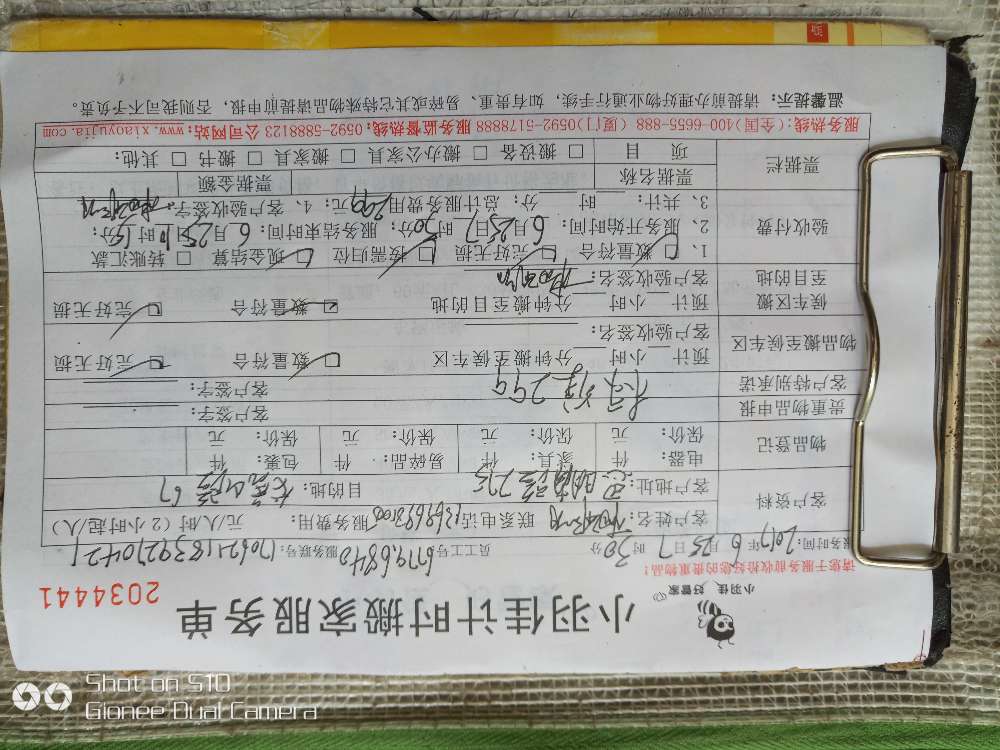 小羽佳计时搬家服务单
2034441
小羽佳 好管家
请您于服务前收拾好您的贵重物品！
服务时间：2017年6月25日7时30分 员工工号： 服务账号：
客户资料 客户姓名： 联系电话： 服务费用： 元/人/时（2小时起/人）
客户地址： 目的地：
物品登记 电器： 件 家具： 件 易碎品： 件 包裹： 元
保价： 元 保价： 元 保价： 元 保价： 元
贵重物品申报 客户签字：
客户特别承诺 299 客户签字：
物品搬至候车区 预计 小时 分钟搬至候车区 数量符合 完好无损
客户验收签名：
候车区搬至目的地 预计 小时 分钟搬至目的地 数量符合 完好无损
客户验收签名：
验收付费 1、数量符合 完好无损 按需归位 现金结算 转账汇款
2、服务开始时间：6月25日7时30分；服务结束时间：6月25日 时 分；
3、共计： 时 分；总计服务费用299元；4、客户验收签字：
票据栏 票据名称 票据金额
项目 搬设备 搬办公家具 搬家具 搬书 其他：
服务热线：(全国)400-6655-888 (厦门)0592-5178888 服务监督热线：0592-5888123 公司网站：www.xiaoyujia.com
温馨提示：请提前办理好物业通行手续，如有贵重、易碎或其它特殊物品请提前申报，否则我司不予负责。
Shot on S10
Gionee Dual Camera